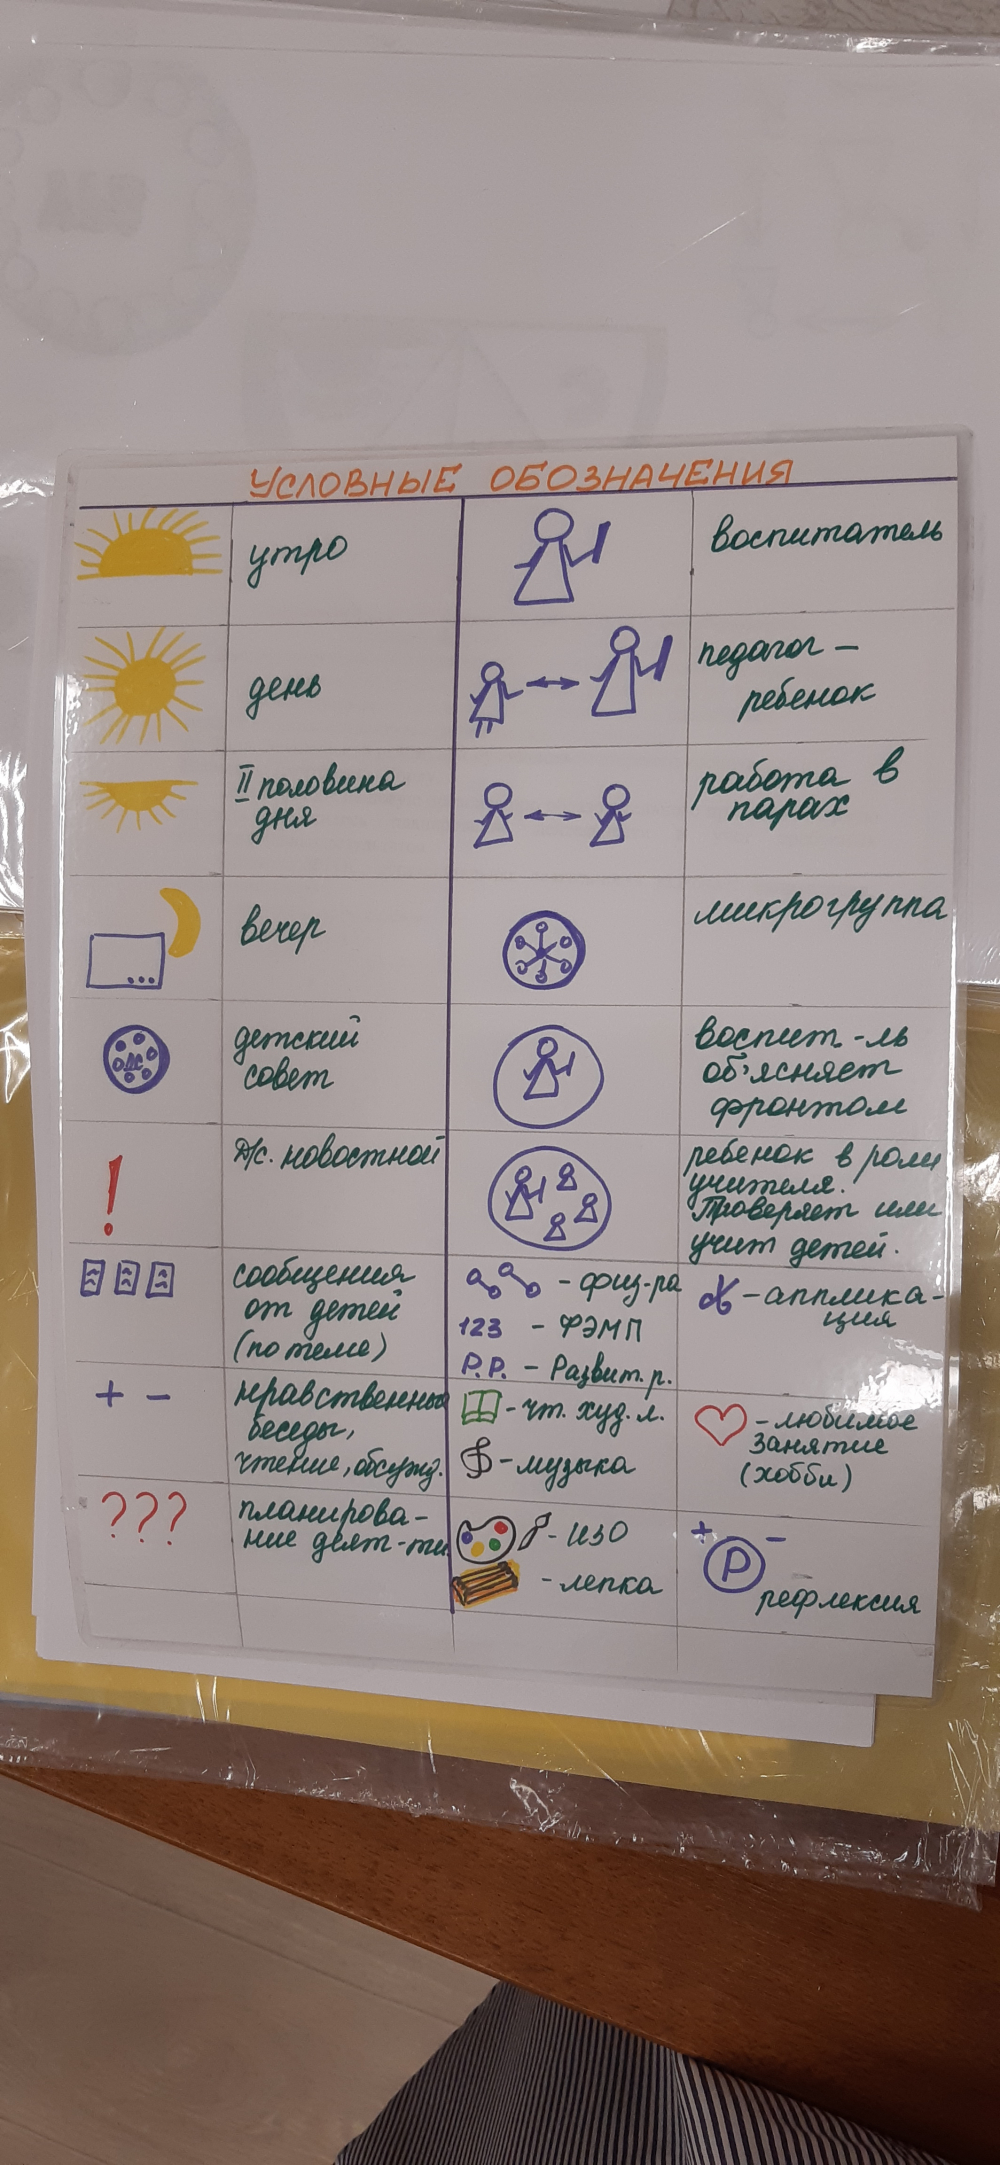 УСЛОВНЫЕ ОБОЗНАЧЕНИЯ
утро
воспитатель
день
педагог –
ребенок
II половина
дня
работа в
парах
вечер
микрогруппа
ДС
детский
совет
воспит-ль
об'ясняет
фронтом
!
Д/с. новостной
ребенок в роли
учителя.
Проверяет или
учит детей.
сообщения
от детей
(по теме)
- физ-ра
123 - ФЭМП
Р.Р. - Развит.р.
- апплика-
ция
+ -
нравственные
беседы,
чтение, обсужд.
- чт. худ. л.
- музыка
- любимое
занятие
(хобби)
???
планирова-
ние деят-ти
- ИЗО
- лепка
+ -
Р
рефлексия